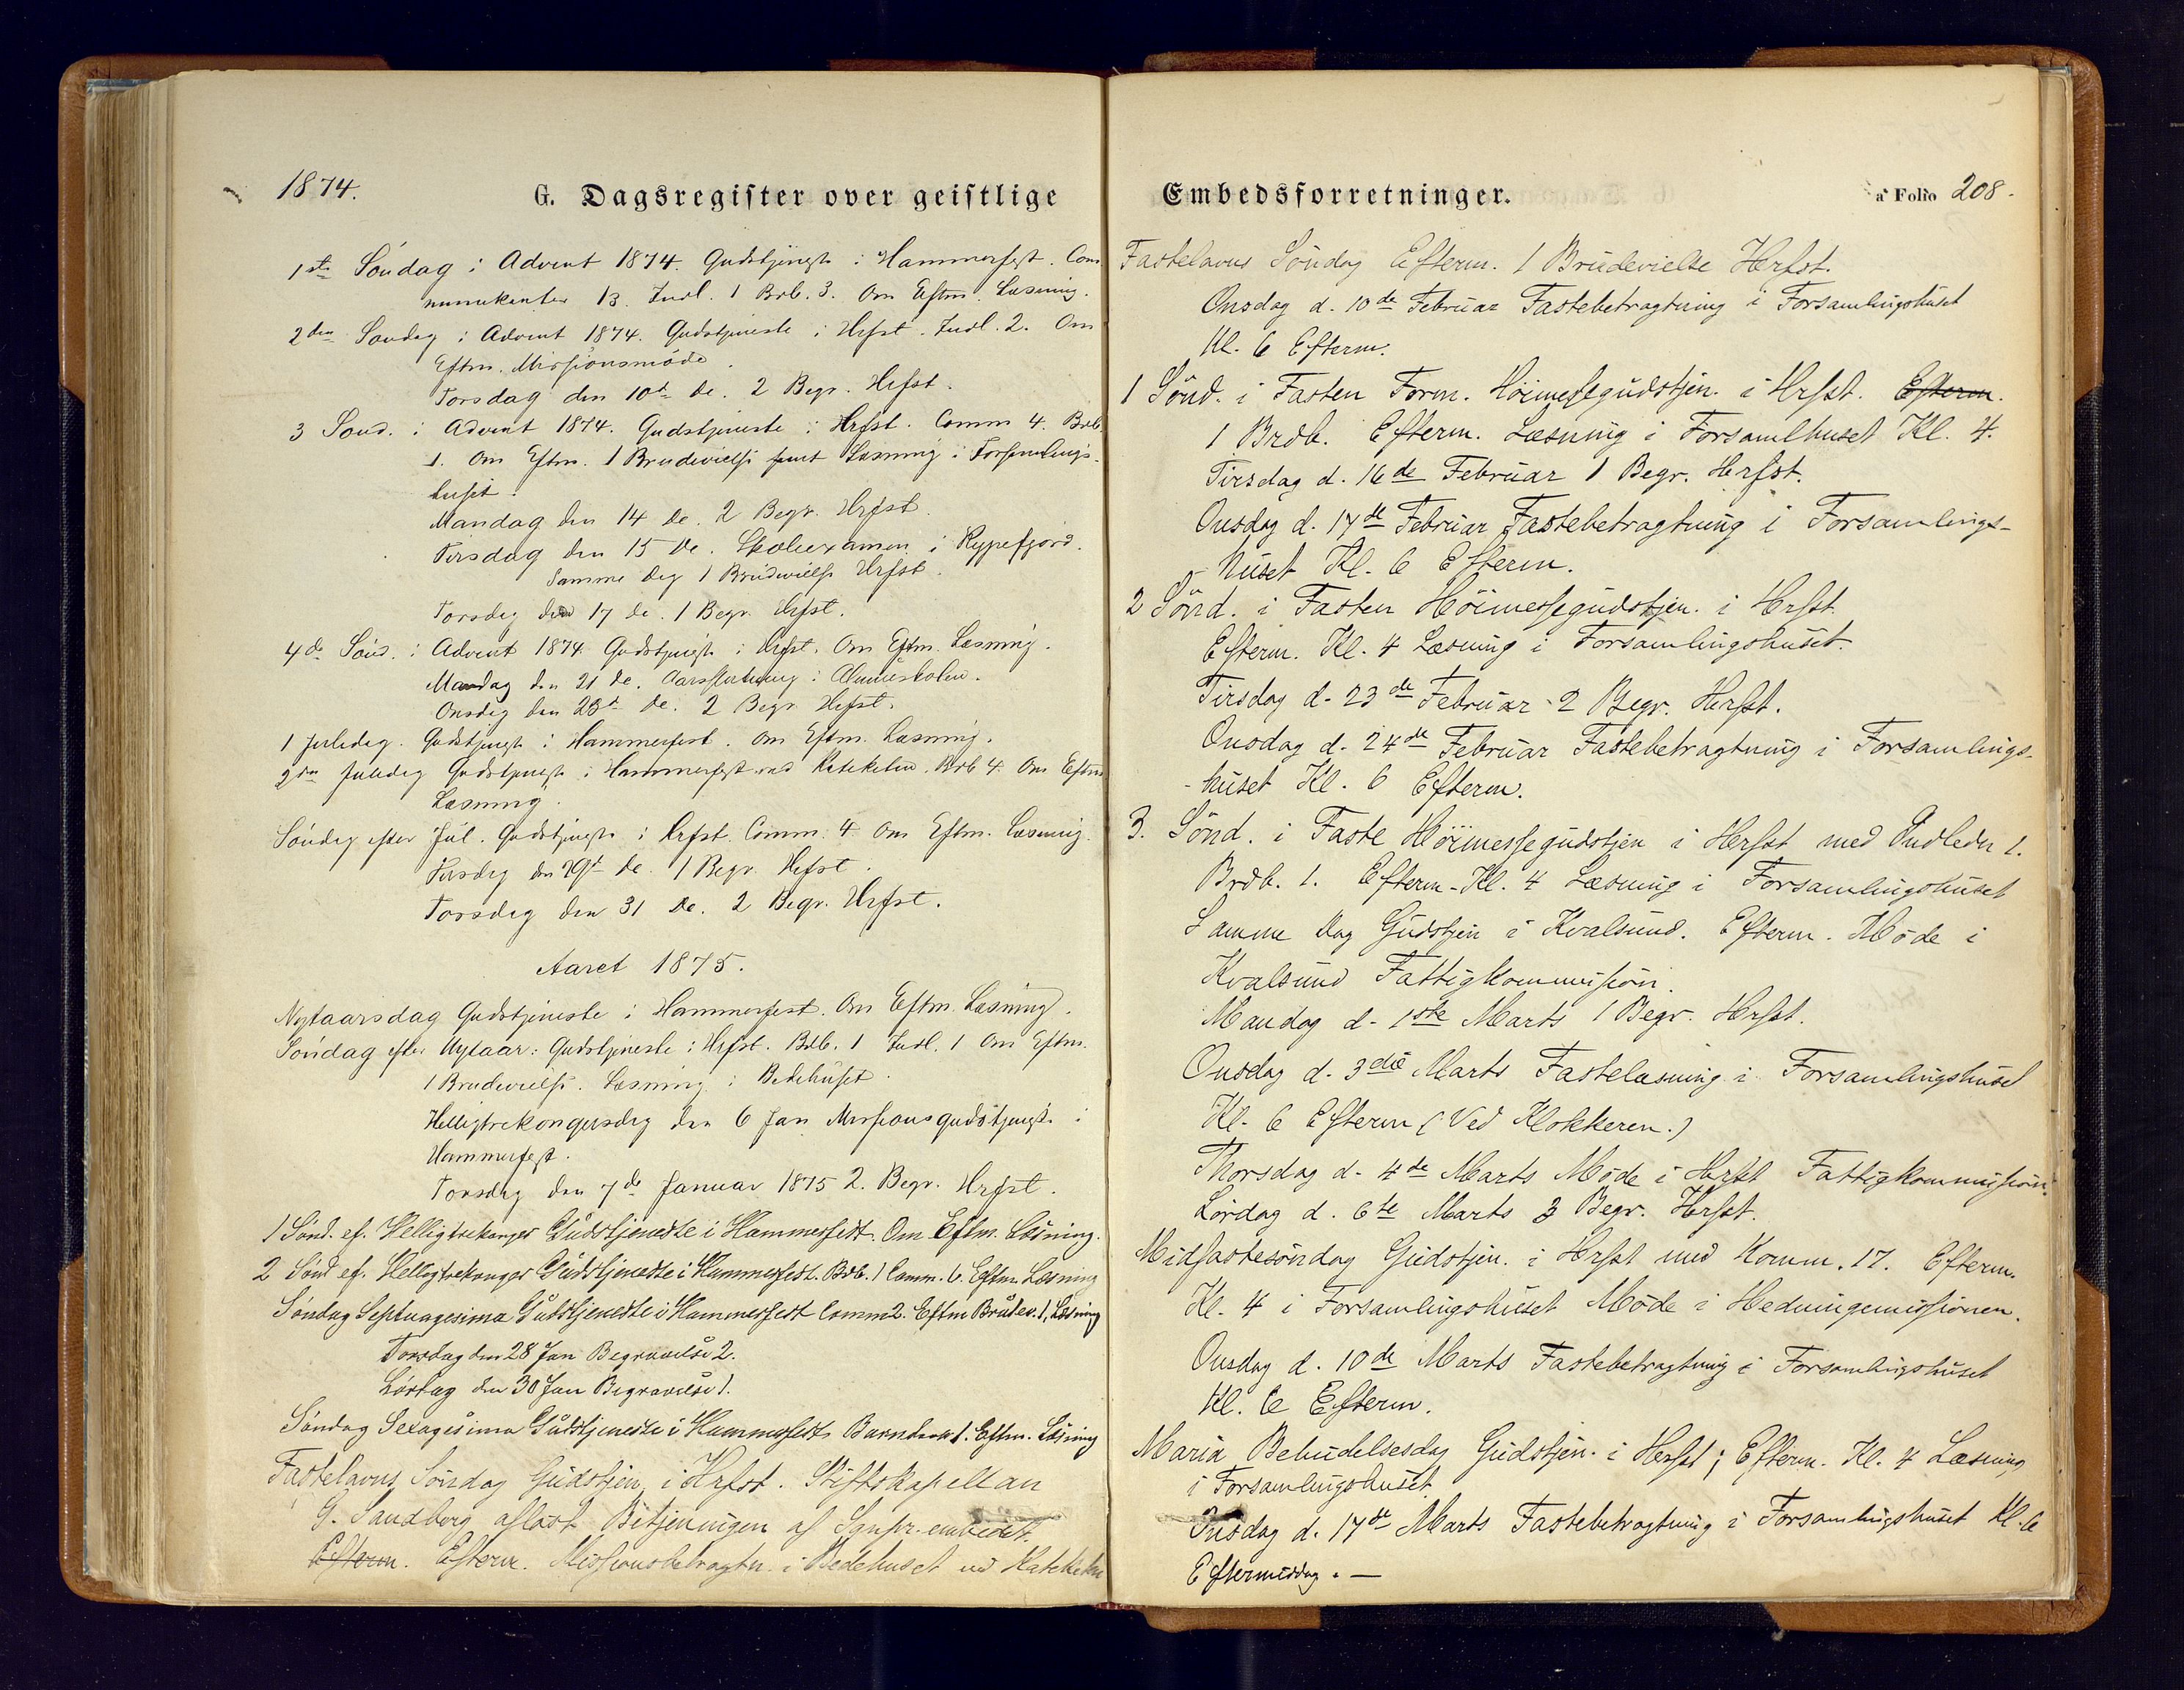 1874.
G. Dagsregister over geistlige
1ste Søndag i Advent 1874. Gudstjeneste i Hammerfest. Com-
munikanter 13. Indl. 1 Brb. 3. Om Eftm. Læsning.
2den Søndag i Advent 1874. Gudstjeneste i Hrfst. Indl. 2. Om
Eftm. Missionsmøde.
Torsdag den 10de De. 2 Begr. Hrfst.
3 Sønd. i Advent 1874. Gudstjeneste i Hrfst. Comm 4. Brb.
1. Om Eftm. 1 Brudevielse samt Læsning i Forsamlings-
huset.
Mandag den 14 De. 2 Begr. Hrfst.
Tirsdag den 15 De. Skoleexamen i Rypefjord.
Samme Dag 1 Brudevielse Hrfst.
Torsdag den 17 De. 1 Begr. Hrfst.
4de Sønd. i Advent 1874 Gudstjeneste i Hrfst. Om Eftm. Læsning.
Mandag den 21 De. Aarsslutning i Almueskolen.
Onsdag den 23de De. 2 Begr. Hrfst.
1 Juledag. Gudstjeneste i Hammerfest. Om Eftm. Læsning.
2den Juledag Gudstjeneste i Hammerfest ved Kateketen. Brb 4. Om Eftm
Læsning.
Søndag efter Jul. Gudstjeneste i Hrfst. Comm. 4 Om Eftm. Læsning.
Tirsdag den 29de De. 1 Begr. Hrfst.
Torsdag den 31 De. 2 Begr. Hrfst.
Aaret 1875.
Nytaarsdag Gudstjeneste i Hammerfest. Om Eftm. Læsning.
Søndag efter Nytaar: Gudstjeneste i Hrfst. Brb. 1 Indl. 1 Om Eftm.
1 Brudevielse. Læsning i Bedehuset.
Helligtrekongersdag den 6 Jan Missionsgudstjeneste i
Hammerfest.
Torsdag den 7de Januar 1875 2. Begr. Hrfst.
1 Sønd. ef. Helligtrekonger Gudstjeneste i Hammerfest. Om Eftm. Læsning.
2 Sønd ef. Helligtrekonger Gudstjeneste i Hammerfest. Brb. 1 Comm. 6. Eftm. Læsning
Søndag Septuagesima Gudstjeneste i Hammerfest Comm 2. Eftm Brudev. 1, Læsning
Torsdag den 28 Jan Begravelse 2.
Lørdag den 30 Jan Begravelse 1.
Søndag Sexagesima Gudstjeneste i Hammerfest. Barnedaab 1. Eftm. Læsning
Fastelavns Søndag Gudstjen. i Hrfst. Stiftskapellan
G. Sandberg afløst Betjeningen af Sgnpr. embedet.
Efterm. Efterm. Missionsbetragtn. i Bedehuset ved Kateketen
Embedsforretninger.
a Folio 208.
Fastelavns Søndag Efterm. 1 Brudevielse Hrfst.
Onsdag d. 10de Februar Fastebetragtning i Forsamlingshuset
Kl. 6 Efterm.
1 Sønd. i Fasten Form. Høimessegudstjen. i Hrfst. Efterm.
1 Brdb. Efterm. Læsning i Forsamlhuset Kl. 4.
Tirsdag d. 16de Februar 1 Begr. Hrfst.
Onsdag d. 17de Februar Fastebetragtning i Forsamlings-
huset Kl. 6 Efterm.
2 Sønd. i Fasten Høimessegudstjen. i Hrfst.
Efterm. Kl. 4 Læsning i Forsamlingshuset.
Tirsdag d. 23de Februar 2 Begr. Hrfst.
Onsdag d. 24de Februar Fastebetragtning i Forsamlings-
-huset Kl. 6 Efterm.
3. Sønd. i Faste Høimessegudstjen i Hrfst med Indleder 1.
Brdb. 1. Efterm. Kl. 4 Læsning i Forsamlingshuset
Samme Dag Gudstjen i Kvalsund. Efterm. Møde i
Kvalsund Fattigkommission.
Mandag d. 1ste Marts 1 Begr. Hrfst.
Onsdag d. 3die Marts Fastelæsning i Forsamlingshuset
Kl. 6 Efterm (Ved Klokkeren.)
Thorsdag d. 4de Marts Møde i Hrfst Fattigkommission.
Lørdag d. 6te Marts 3 Begr. Hrfst.
Midfastesøndag Gudstjen. i Hrfst med Komm. 17. Efterm.
Kl. 4 i Forsamlingshuset Møde i Hedningemissionen.
Onsdag d. 10de Marts Fastebetragtning i Forsamlingshuset
Kl. 6 Efterm.
Maria Bebudelsesdag Gudstjen. i Hrfst; Efterm. Kl. 4 Læsning
i Forsamlingshuset.
Onsdag d. 17de Marts Fastebetragtning i Forsamlingshuset Kl. 6
Eftermiddag. —